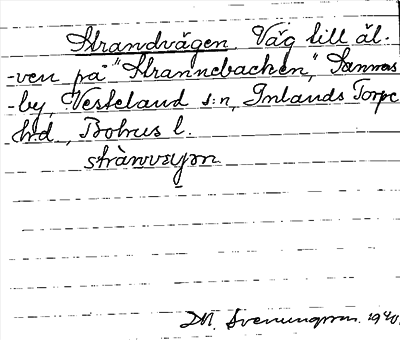 Strandvägen. Väg till äl-
-ven på "Strannebacken", Sannas-
-by, Vesteland s:n, Inlands Torpe
hd., Bohus l.
strànvεyən
D.M. Svenungson. 1940.